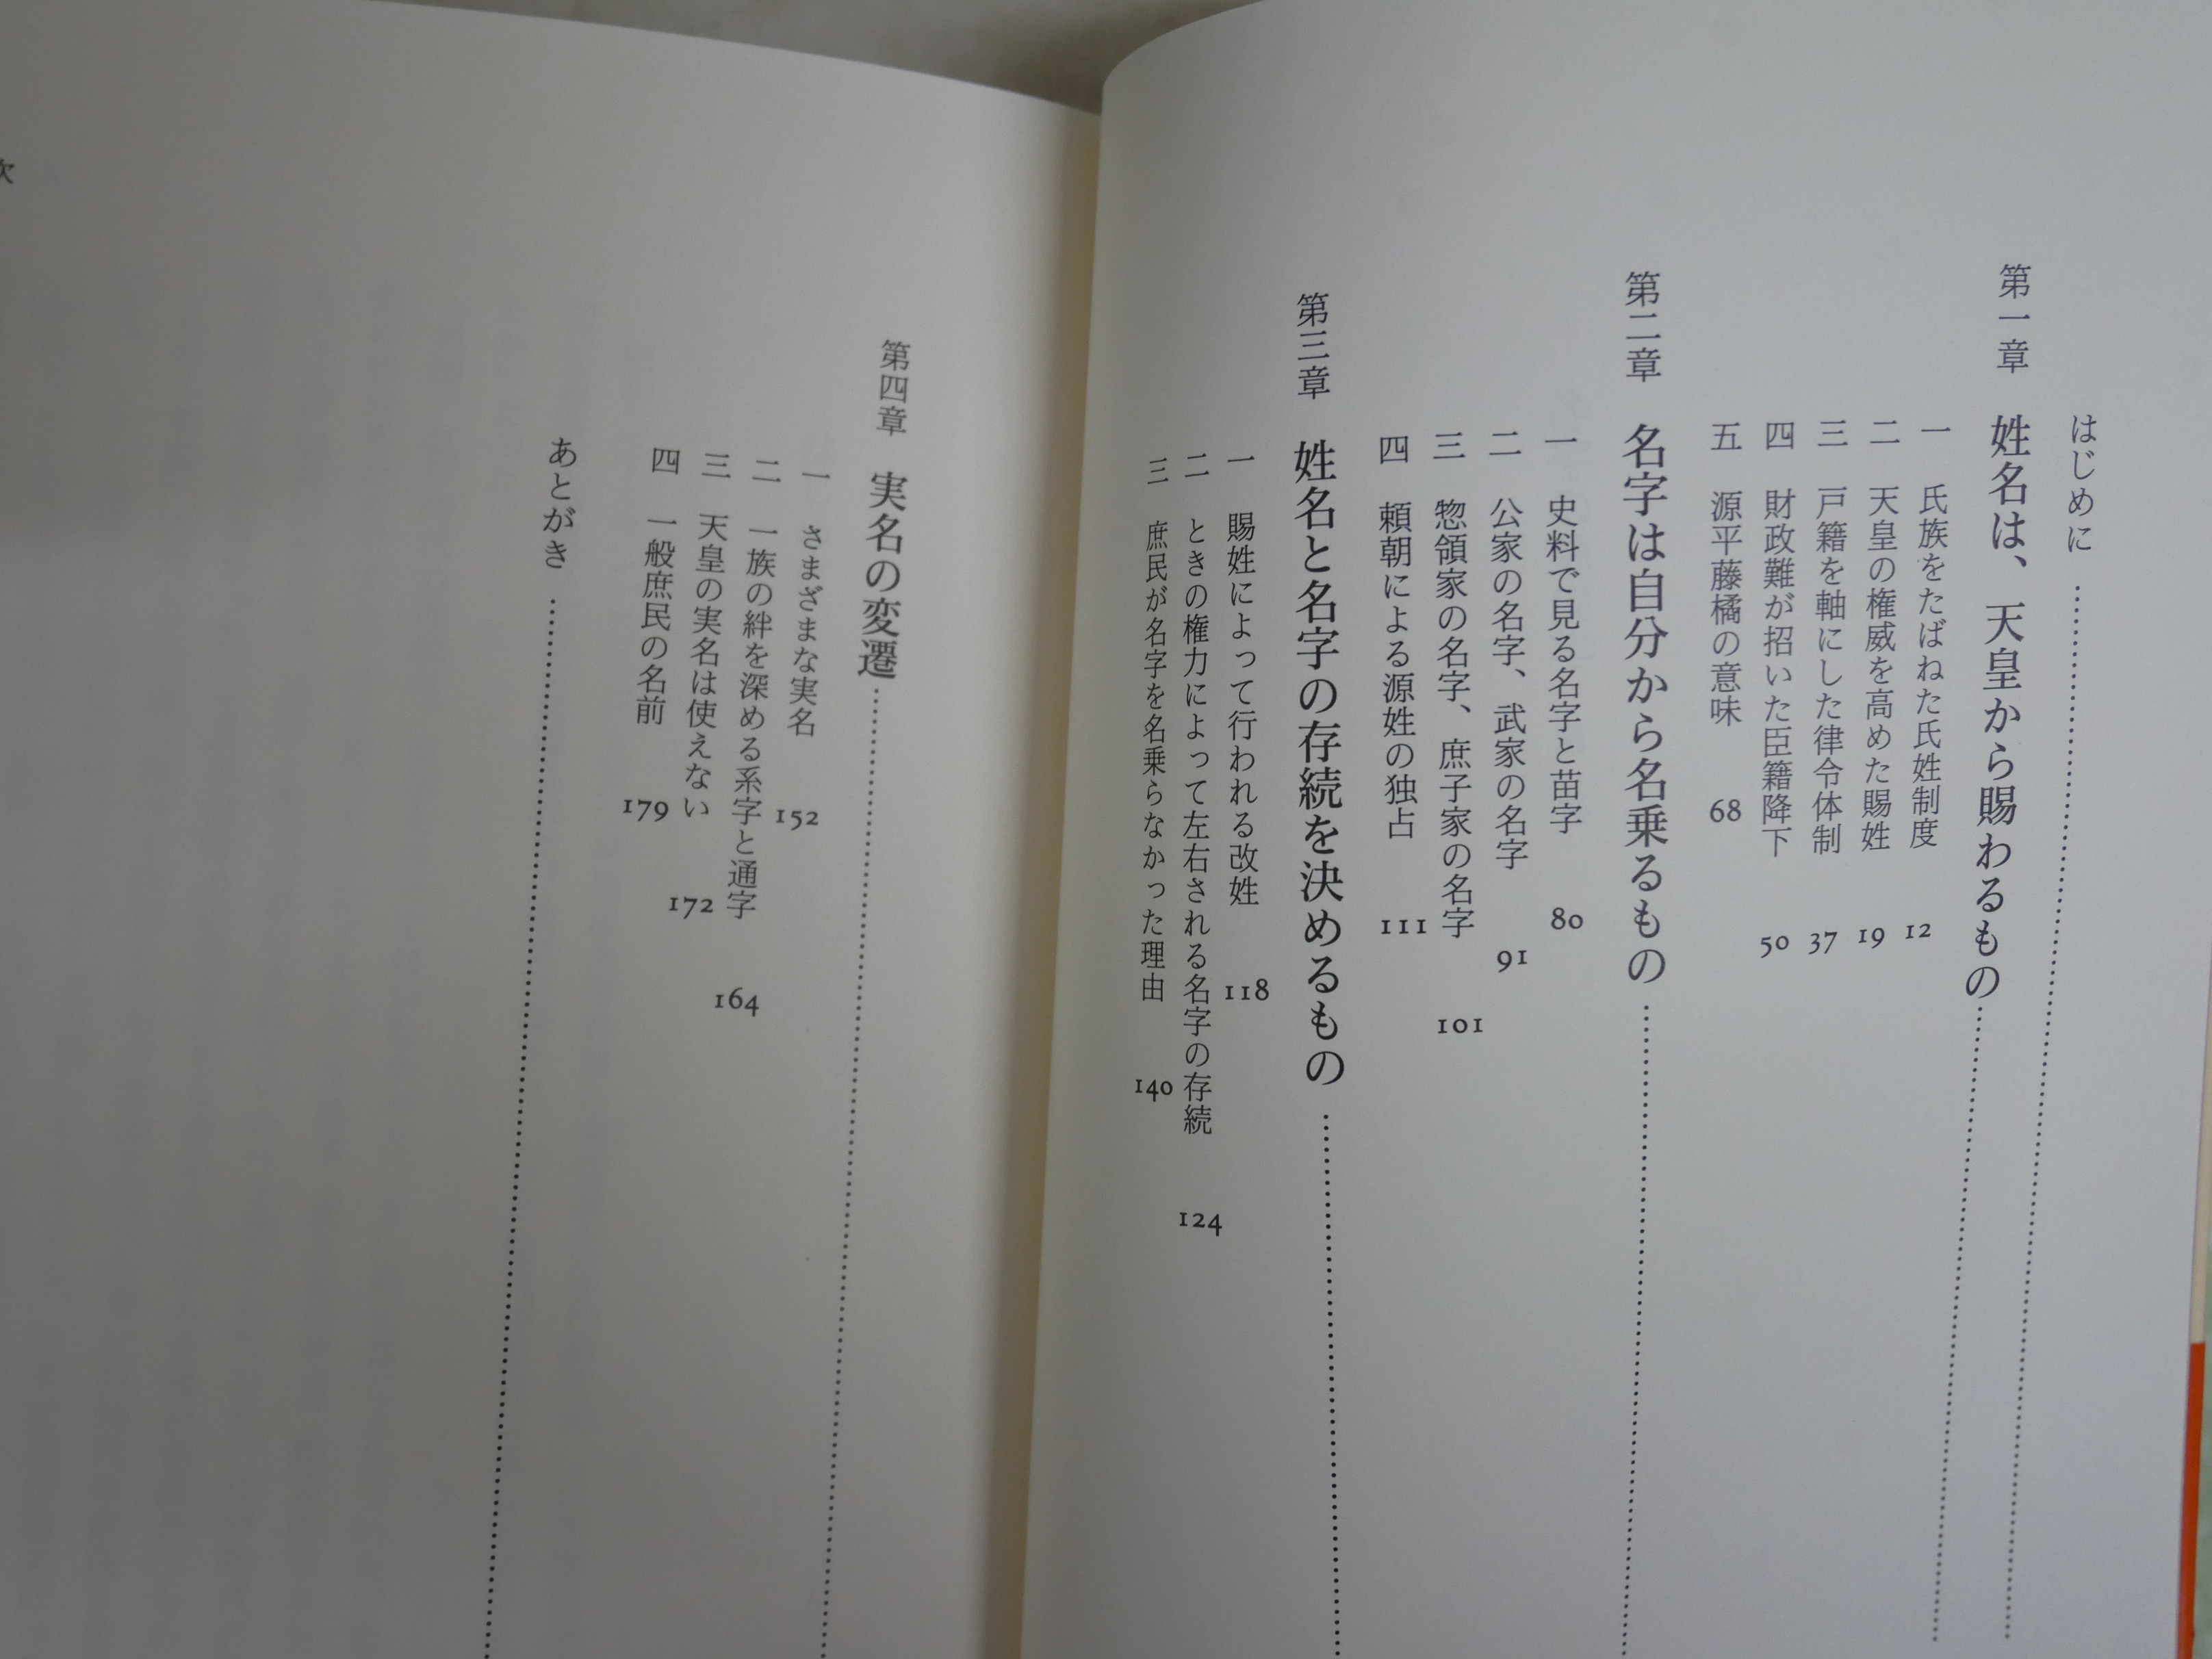 はじめに
第一章 姓名は、天皇から賜わるもの
一 氏族をたばねた氏姓制度 12
二 天皇の権威を高めた賜姓 19
三 戸籍を軸にした律令体制 37
四 財政難が招いた臣籍降下 50
五 源平藤橘の意味 68
第二章 名字は自分から名乗るもの
一 史料で見る名字と苗字 80
二 公家の名字、武家の名字 91
三 惣領家の名字、庶子家の名字 101
四 頼朝による源姓の独占 111
第三章 姓名と名字の存続を決めるもの
一 賜姓によって行われる改姓 118
二 ときの権力によって左右される名字の存続 124
三 庶民が名字を名乗らなかった理由 140
第四章 実名の変遷
一 さまざまな実名 152
二 一族の絆を深める系字と通字 164
三 天皇の実名は使えない 172
四 一般庶民の名前 179
あとがき
次